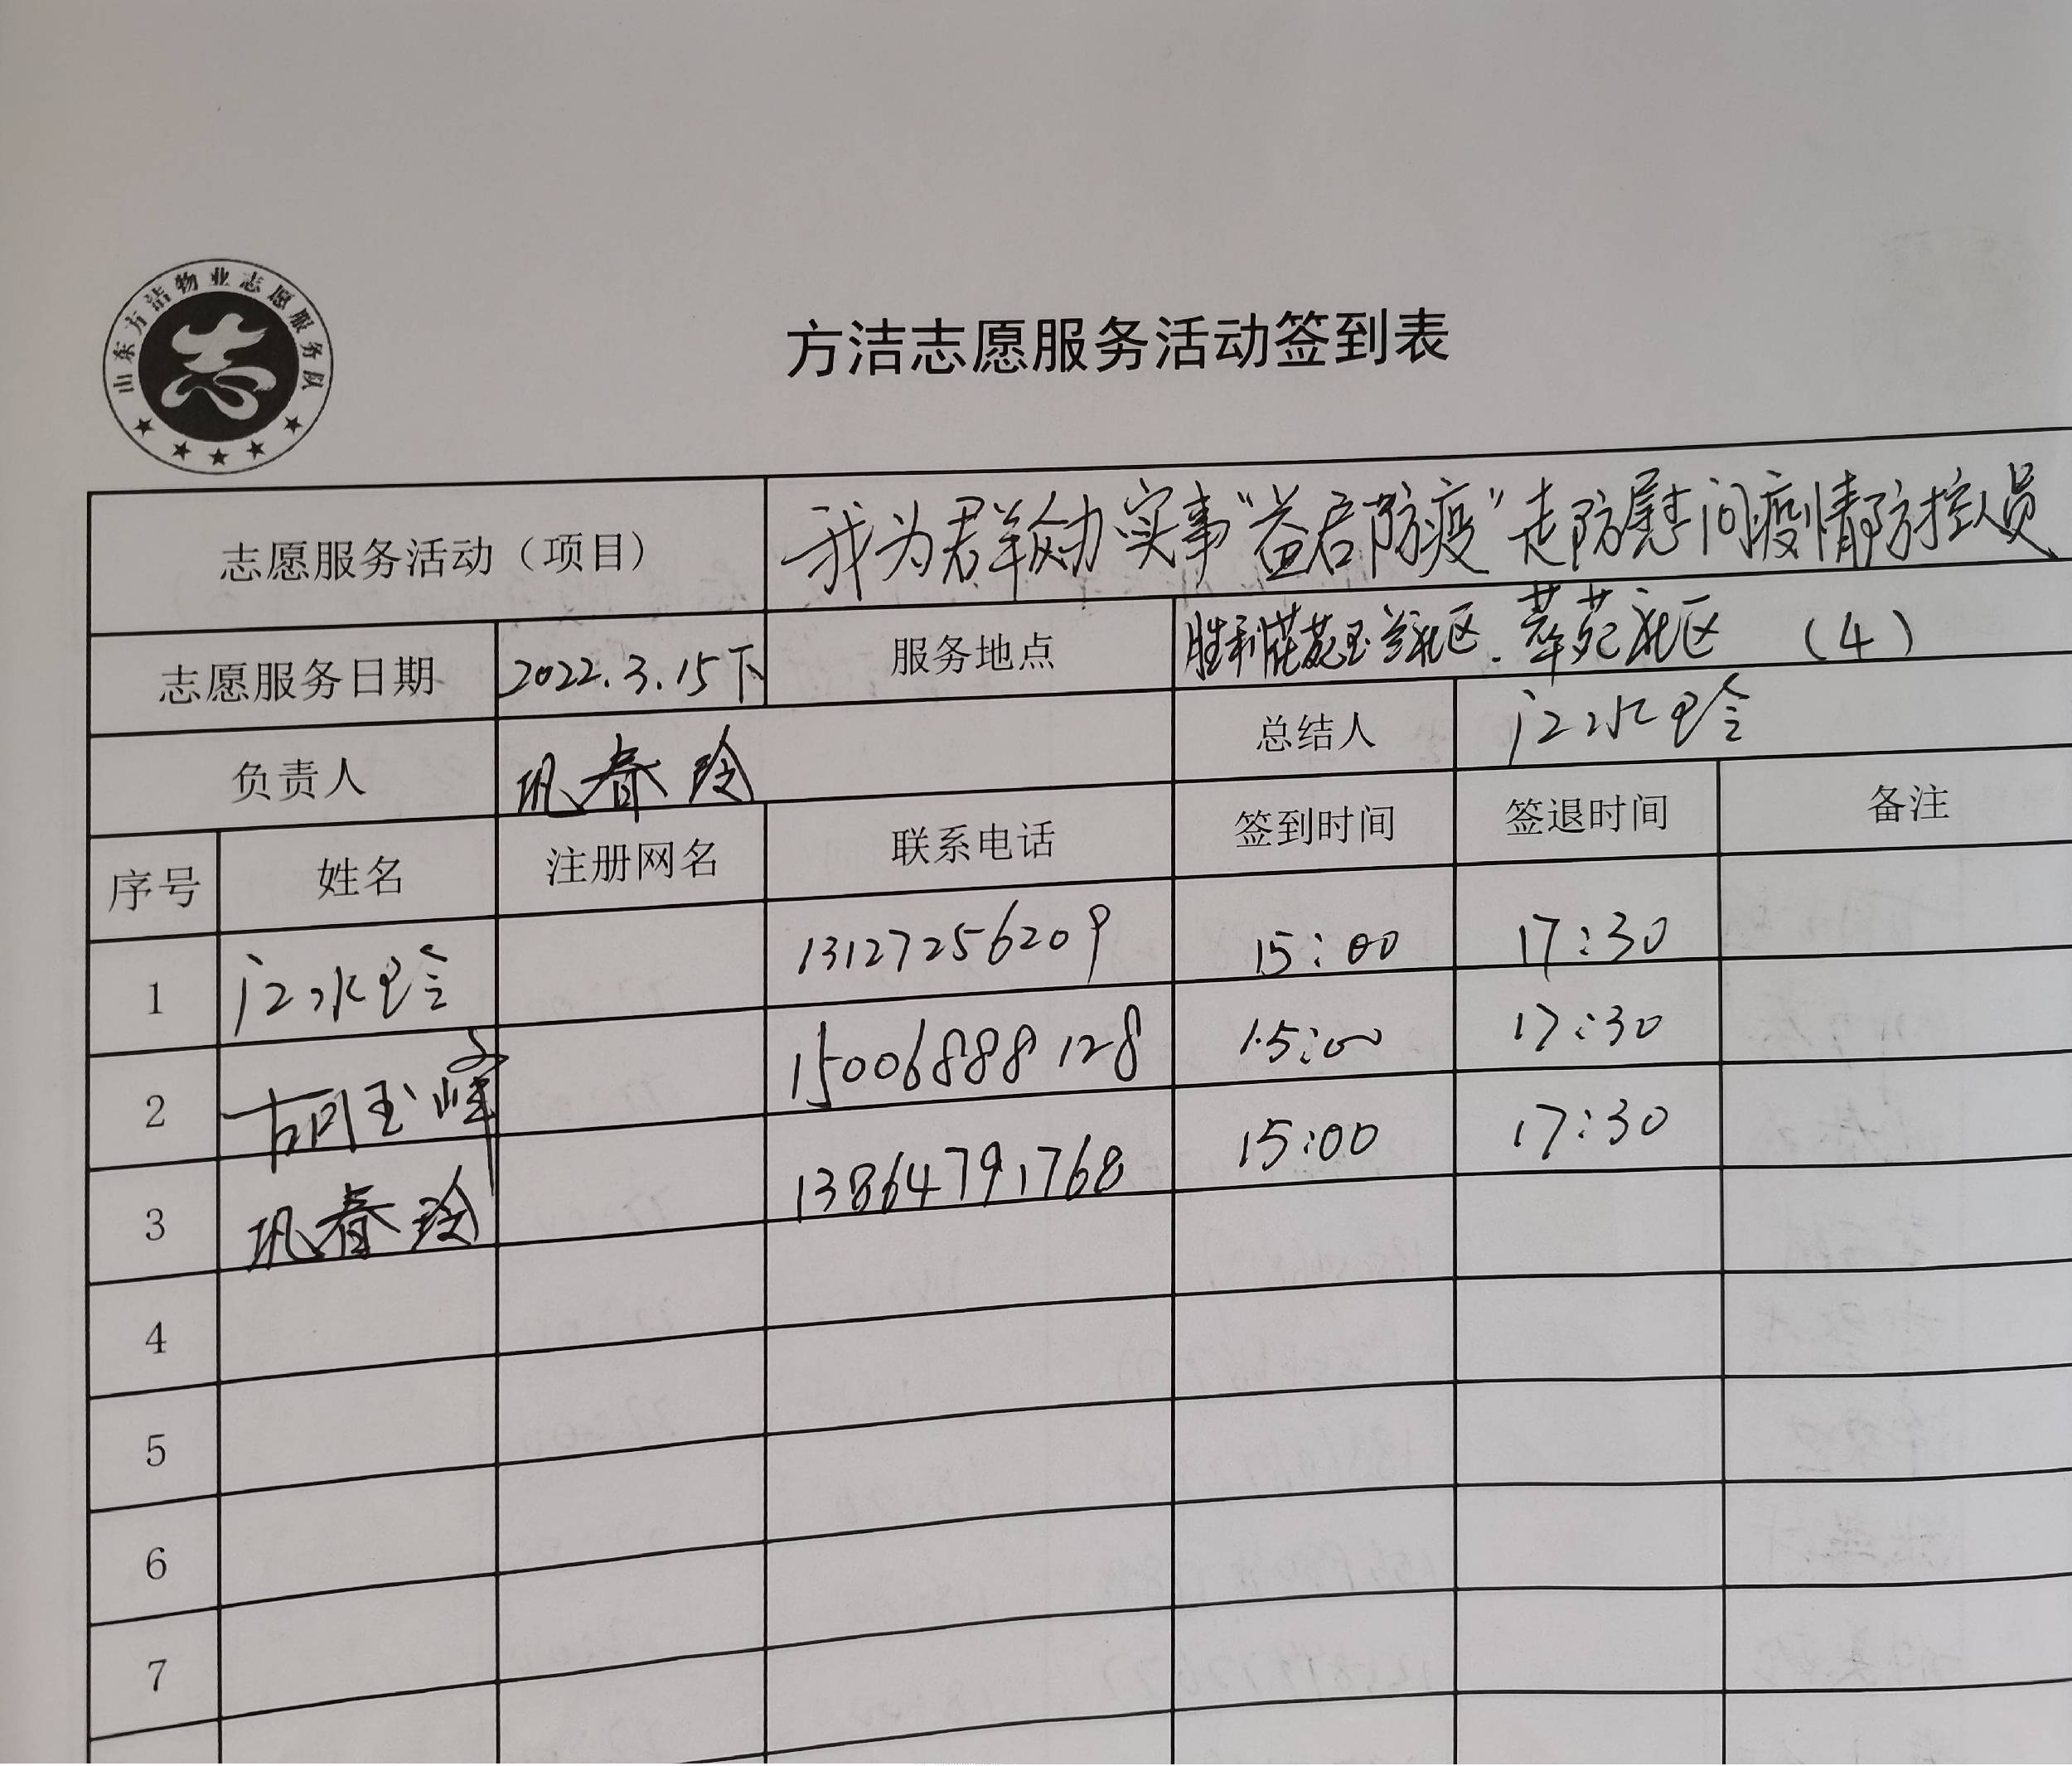 山东方洁物业志愿服务队
方洁志愿服务活动签到表
志愿服务活动（项目） 我为群众办实事“益启防疫”走防慰问疫情防控人员
志愿服务日期 2022.3.15下 服务地点 胜利花苑玉兰社区.萃苑社区 （4）
负责人 巩春玲 总结人 江冰玲
序号 姓名 注册网名 联系电话 签到时间 签退时间 备注
1 江冰玲 13127256209 15:00 17:30
2 胡玉峰 15006888128 15:00 17:30
3 巩春玲 13864791768 15:00 17:30
4
5
6
7